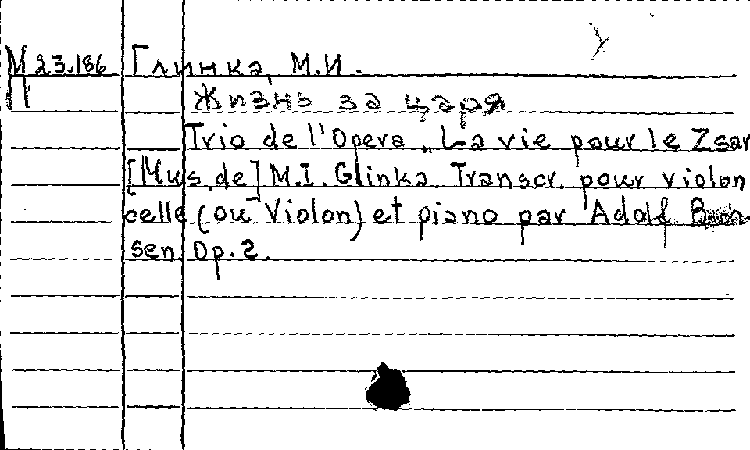 М 23.186 Глинка, М.И.
Жизнь за царя
Trio de l'Opera. La vie pour le Zsar
[Mus. de] M.I. Glinka. Transcr. pour violon
celle (ou Violon) et piano par Adolf
sen. Op. 2.